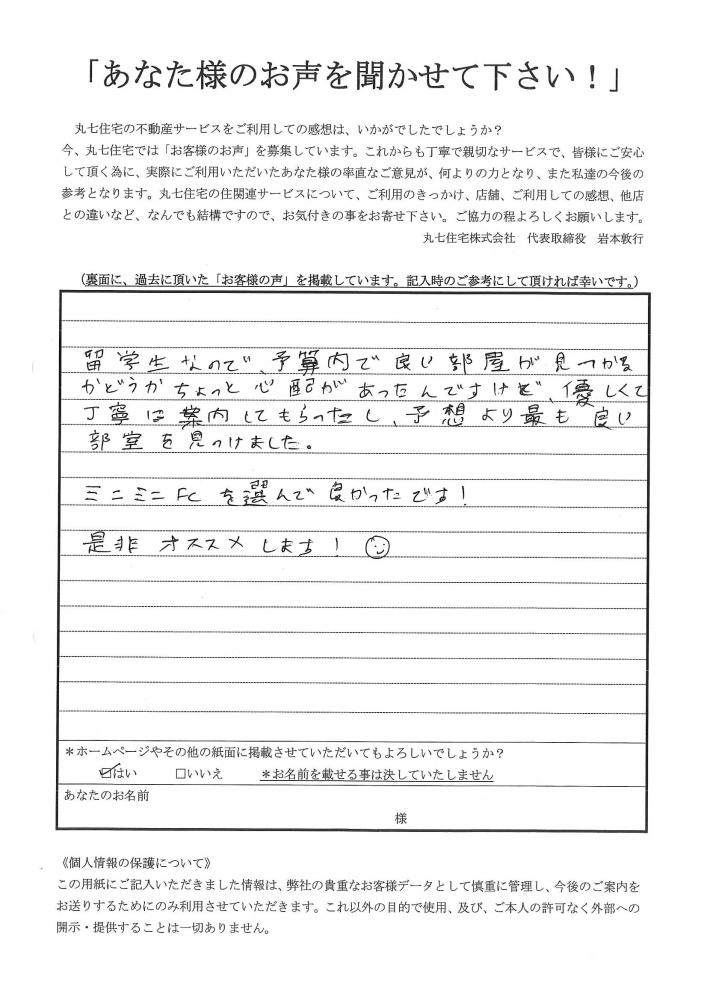 「あなた様のお声を聞かせて下さい！」
丸七住宅の不動産サービスをご利用しての感想は、いかがでしたでしょうか？
今、丸七住宅では「お客様のお声」を募集しています。これからも丁寧で親切なサービスで、皆様にご安心
して頂く為に、実際にご利用いただいたあなた様の率直なご意見が、何よりの力となり、また私達の今後の
参考となります。丸七住宅の住関連サービスについて、ご利用のきっかけ、店舗、ご利用しての感想、他店
との違いなど、なんでも結構ですので、お気付きの事をお寄せ下さい。ご協力の程よろしくお願いします。
丸七住宅株式会社　代表取締役　岩本敦行
（裏面に、過去に頂いた「お客様の声」を掲載しています。記入時のご参考にして頂ければ幸いです。）
留学生なので、予算内で良い部屋が見つかる
かどうかちょっと心配があったんですけど、優しくて
丁寧は案内してもらったし、予想より最も良い
部室を見つけました。
ミニミニFCを選んで良かったです！
是非オススメします！
＊ホームページやその他の紙面に掲載させていただいてもよろしいでしょうか？
☑はい　□いいえ　＊お名前を載せる事は決していたしません
あなたのお名前
様
《個人情報の保護について》
この用紙にご記入いただきました情報は、弊社の貴重なお客様データとして慎重に管理し、今後のご案内を
お送りするためにのみ利用させていただきます。これ以外の目的で使用、及び、ご本人の許可なく外部への
開示・提供することは一切ありません。